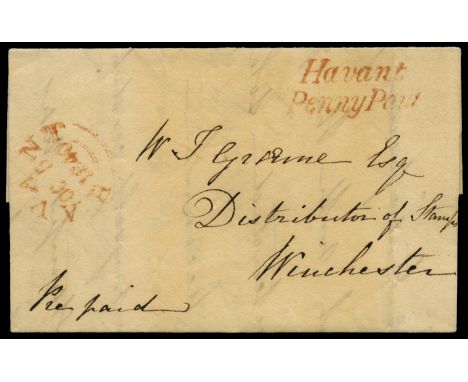 Havant
Penny Paid
W J Græme Esq
Distributor of Stamps
Winchester
Pre paid